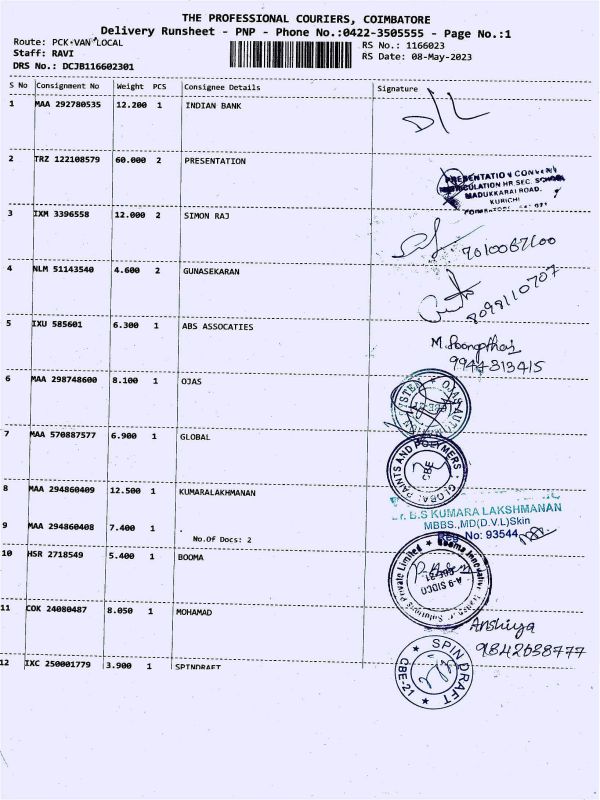 THE PROFESSIONAL COURIERS, COIMBATORE
Delivery Runsheet - PNP - Phone No.:0422-3505555 - Page No.:1
Route: PCK-VAN LOCAL
Staff: RAVI
DRS No.: DCJB116602301
RS No.: 1166023
RS Date: 08-May-2023
S No Consignment No Weight PCS Consignee Details Signature
1 MAA 292780535 12.200 1 INDIAN BANK
2 TRZ 122108579 60.000 2 PRESENTATION
PRESENTATION CONVENT
MATRICULATION HR SEC. SCHOOL
MADUKKARAI ROAD,
KURICHI
3 IXM 3396558 12.000 2 SIMON RAJ
4 NLM 51143540 4.600 2 GUNASEKARAN
8098110707
5 IXU 585601 6.300 1 ABS ASSOCATIES
9944313415
6 MAA 298748600 8.100 1 OJAS
7 MAA 570887577 6.900 1 GLOBAL
GLOBAL PAINTS AND POLYMERS
CBE
8 MAA 294860409 12.500 1 KUMARALAKHMANAN
Dr. B.S KUMARA LAKSHMANAN
MBBS.,MD(D.V.L)Skin
Reg No: 93544
9 MAA 294860408 7.400 1
No.Of Docs: 2
10 HSR 2718549 5.400 1 BOOMA
A-9 SIDCO
CBE-21
11 COK 24080487 8.050 1 MOHAMAD
Anshiya
9842638777
12 IXC 250001779 3.900 1 SPINDRAFT
SPIN DRAFT
CBE-21